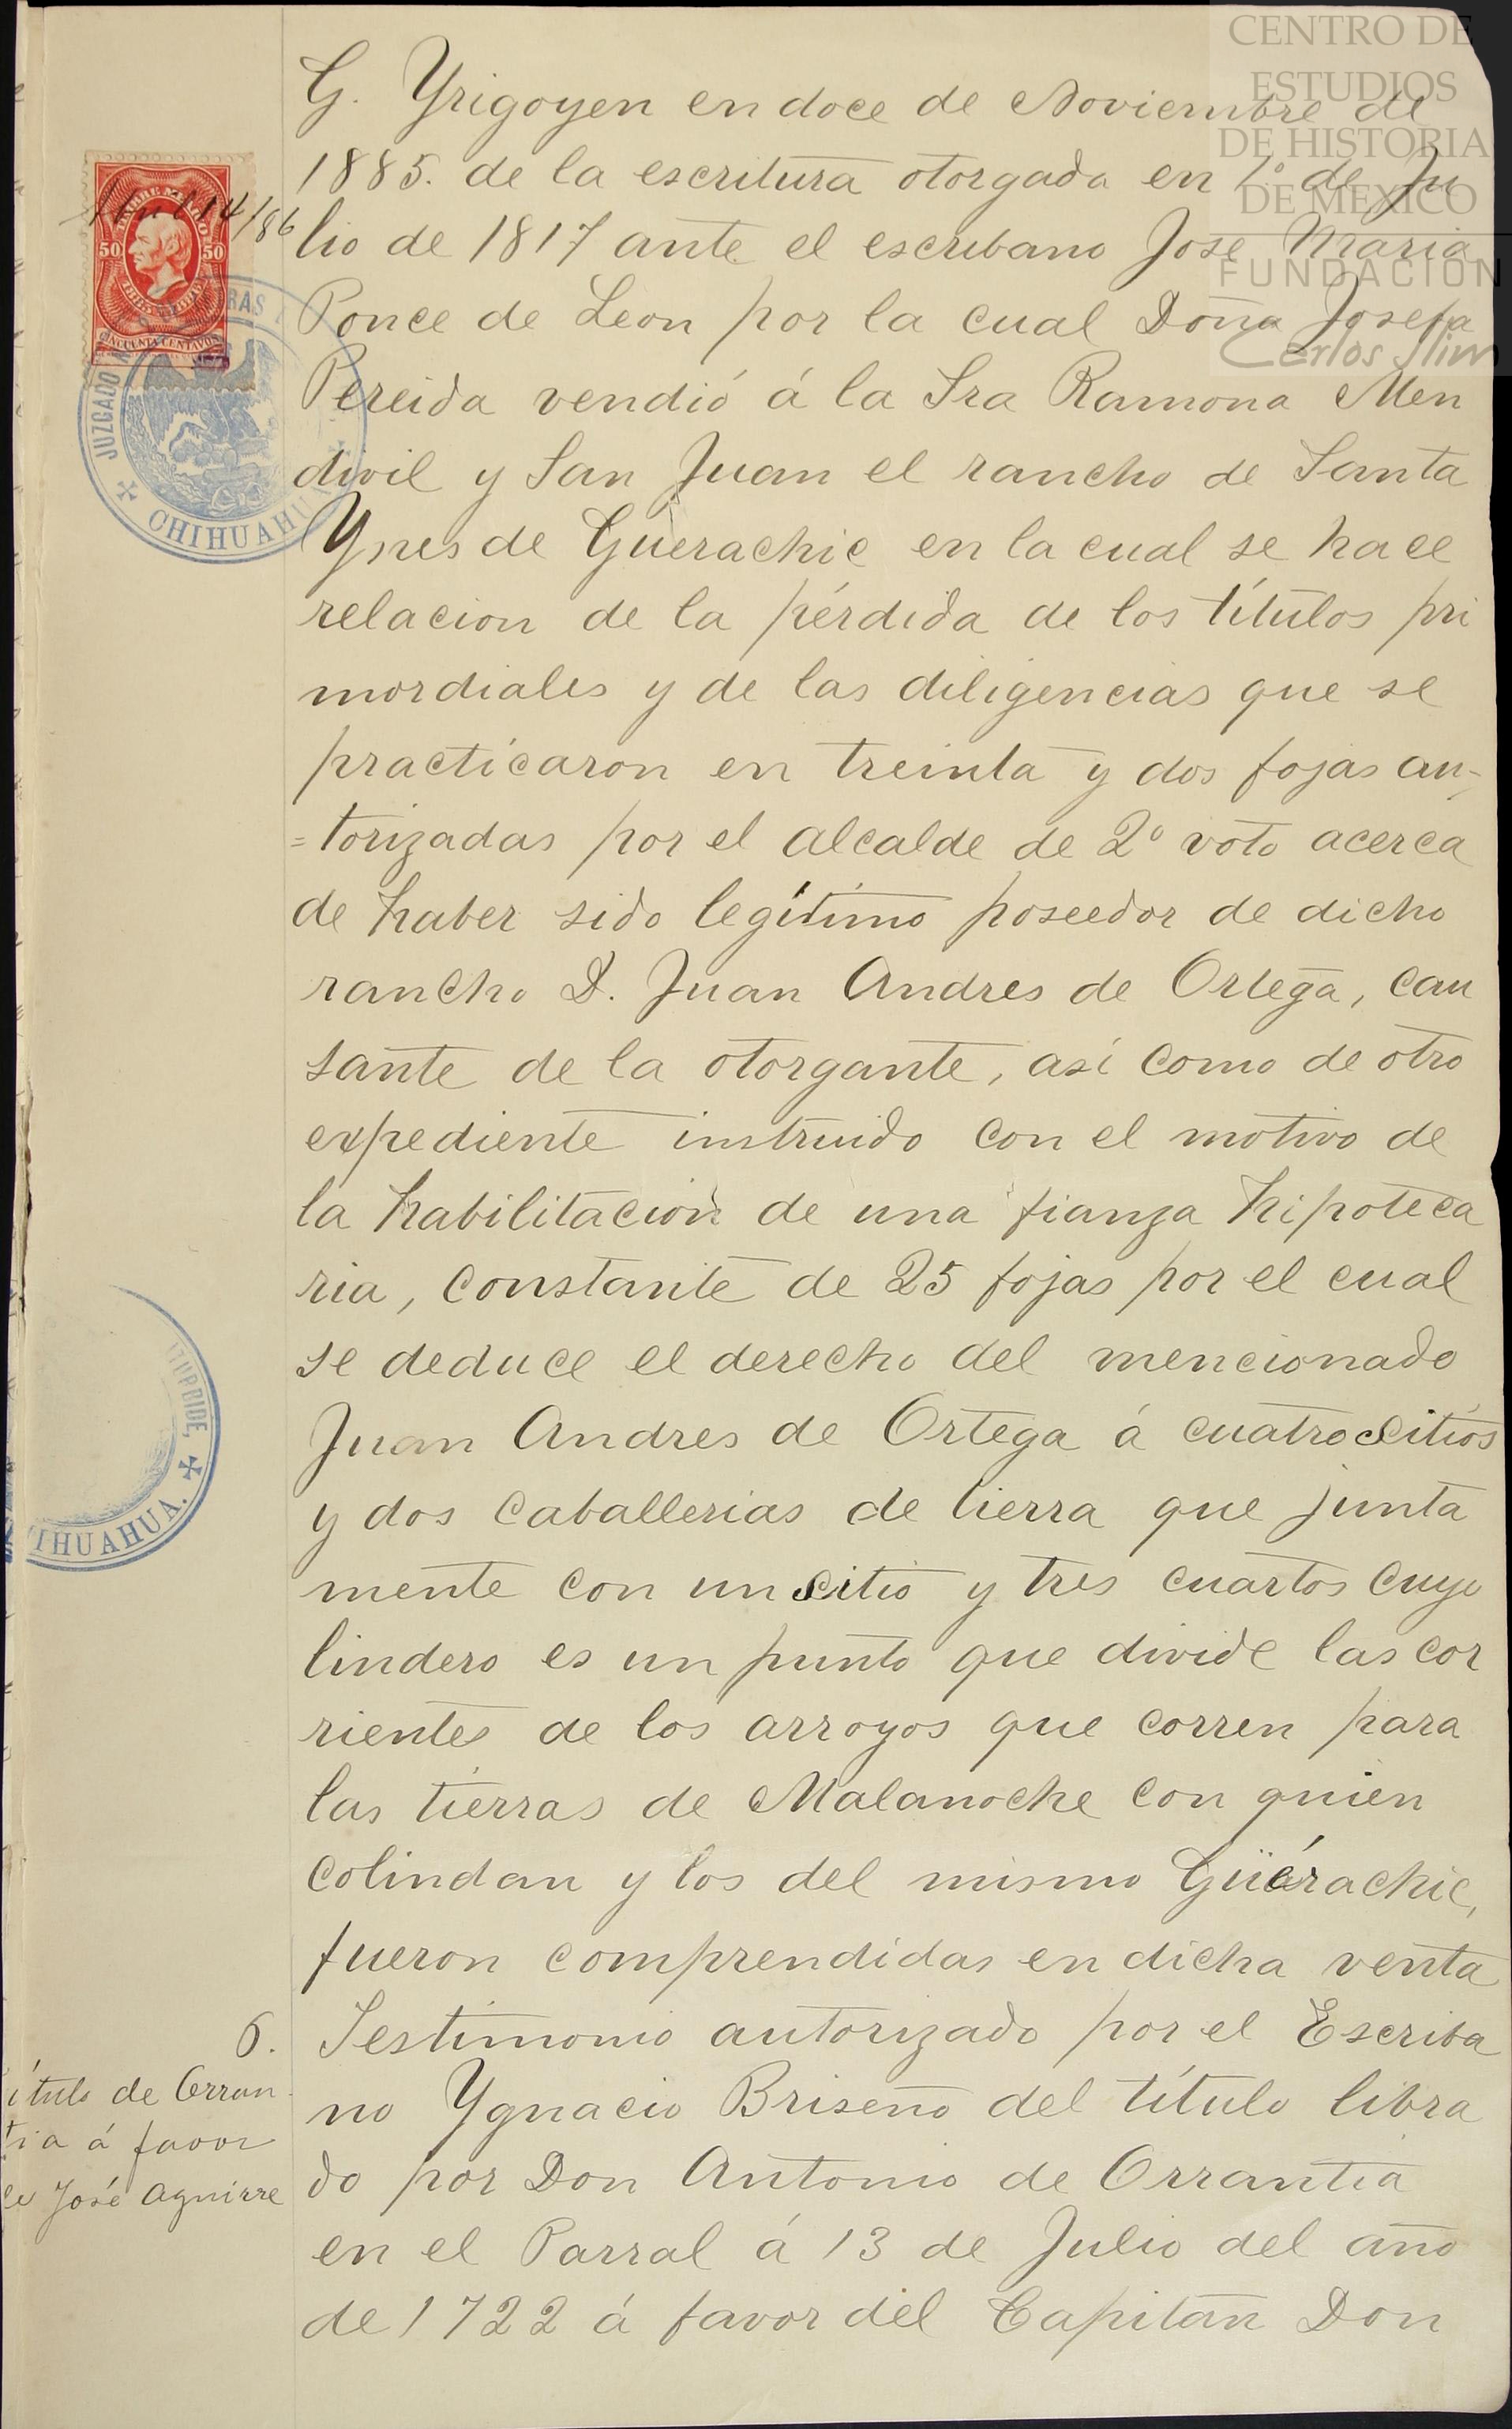 CENTRO DE
ESTUDIOS
DE HISTORIA
DE MEXICO
FUNDACIÓN
Carlos Slim
G. Yrigoyen en doce de Noviembre de
1885. de la escritura otorgada en 1.º de Ju
lio de 1817 ante el escribano José Maria
Ponce de Leon por la cual Doña Josefa
Pereida vendió á la Sra Ramona Men
divil y San Juan el rancho de Santa
Ynes de Güerachic en la cual se hace
relacion de la pérdida de los títulos pri
mordiales y de las diligencias que se
practicaron en treinta y dos fojas au-
=torizadas por el alcalde de 2º voto acerca
de haber sido legítimo poseedor de dicho
rancho D. Juan Andres de Ortega, cau
sante de la otorgante, así como de otro
expediente instruido con el motivo de
la habilitación de una fianza hipoteca
ria, constante de 25 fojas por el cual
se deduce el derecho del mencionado
Juan Andres de Ortega á cuatro sitios
y dos caballerias de tierra que junta
mente con un sitio y tres cuartos cuyo
lindero es un punto que divide las cor
rientes de los arroyos que corren para
las tierras de Malanoche con quien
colindan y los del mismo Güérachic,
fueron comprendidas en dicha venta
6. Testimonio autorizado por el Escriba
no Ygnacio Briseño del título libra
do por Don Antonio de Orrantia
en el Parral á 13 de Julio del año
de 1722 á favor del Capitan Don
ítulo de Orran-
tia á favor
de José Aguirre
Abril 14/86
50 50
CINCUENTA CENTAVOS
JUZGADO
CHIHUAHUA
IHUAHUA.